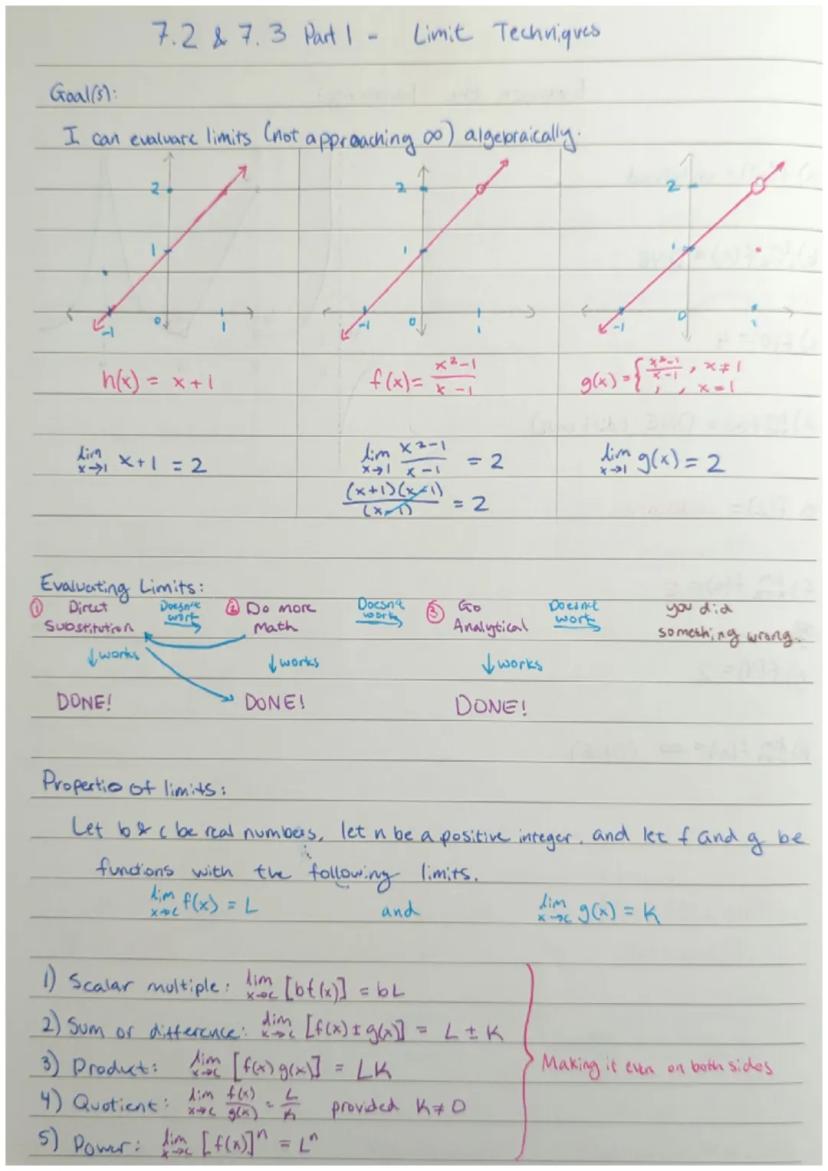 7.2 & 7.3 Part 1 - Limit Techniques
Goal(s):
I can evaluate limits (not approaching ∞) algebraically.
2 1 -1 0 1
2 1 -1 0 1
2 1 -1 0 1
h(x) = x+1
f(x) = (x²-1)/(x-1)
g(x) = { (x²-1)/(x-1), x≠1
1, x=1
lim x→1 x+1 = 2
lim x→1 (x²-1)/(x-1) = 2
(x+1)(x-1)/(x-1) = 2
lim x→1 g(x) = 2
Evaluating Limits:
① Direct Substitution Doesn't work → ② Do more Math Doesn't work → ③ Go Analytical Doesn't work → you did something wrong.
↓works ↓works ↓works
DONE! DONE! DONE!
Propertie of limits:
Let b & c be real numbers, let n be a positive integer, and let f and g be
functions with the following limits.
lim x→c f(x) = L and lim x→c g(x) = K
1) Scalar multiple: lim x→c [bf(x)] = bL
2) Sum or difference: lim x→c [f(x) ± g(x)] = L ± K
3) Product: lim x→c [f(x) g(x)] = LK
4) Quotient: lim x→c f(x)/g(x) = L/K provided K≠0
5) Power: lim x→c [f(x)]ⁿ = Lⁿ
Making it even on both sides